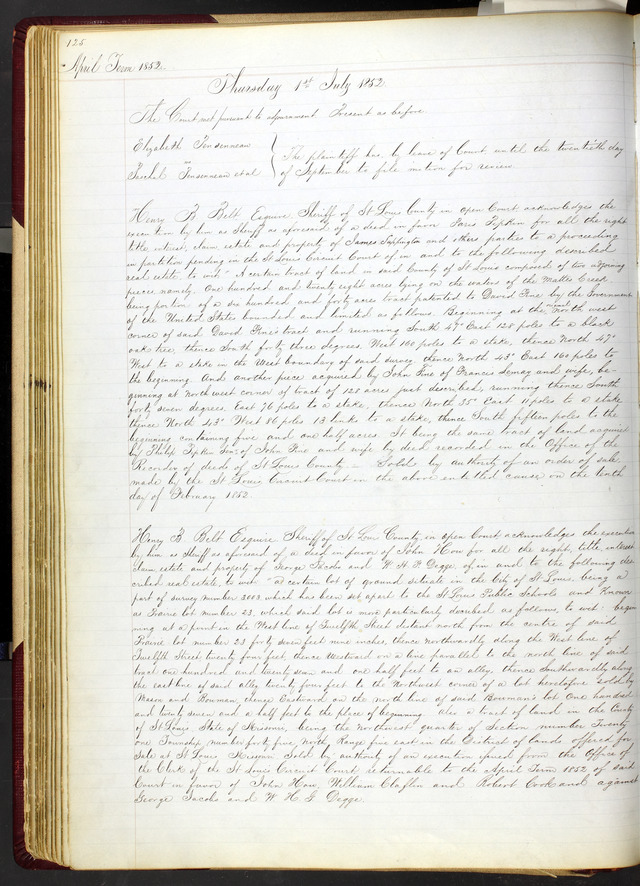 125
April Term 1852.
Thursday 1st July 1852
The Court met pursuant to adjournment Present as before
Elizabeth
vs
The plaintiff has by leave of Court until the twentieth day
et al
of September to file motion for review.
Henry B Belt Esquire Sheriff of St Louis County in open Court acknowledges the
execution by him as Sheriff as aforesaid of a deed in favor Paris Pipkin for all the right
title, interest, claim estate and property of James Sappington and others parties to a proceeding
in partition pending in the St Louis Circuit Court of in and to the following described
real estate, to wit: A certain tract of land in said County of St Louis composed of two adjoining
pieces namely. One hundred and twenty eight acres lying on the waters of the Creek
being portion of a six hundred and forty acre tract patented to David Pine by the Government
of the United States bounded and limited as follows. Beginning at the most north west
corner of said David Pine's tract and running South 47° East 128 poles to a black
oak tree, thence South forty three degrees West 160 poles to a stake, thence North 47°
West to a stake in the West boundary of said survey thence North 43° East 160 poles to
the beginning. And another piece acquired by John Pine of Francis and wife, be-
ginning at North west corner of tract of 128 acres just described, running thence South
forty seven degrees East 76 poles to a stake, thence North 35° East 11 poles to a stake
thence North 43° West 86 poles 13 links to a stake, thence South fifteen poles to the
beginning containing five and one half acres It being the same tract of land acquired
by Philip Pipkin of John Pine and wife by deed recorded in the Office of the
Recorder of deeds of St Louis County — Sold by authority of an order of sale
made by the St Louis Circuit Court in the above entitled cause on the tenth
day of February 1852.
Henry B. Belt Esquire Sheriff of St Louis County in open Court acknowledges the execution
by him as Sheriff as aforesaid of a deed in favor of John How for all the right, title, interest
claim estate and property of George Jacobs and W. H. G Degge. of in and to the following des-
cribed real estate, to wit — a certain lot of ground situate in the City of St Louis, being a
part of survey number 2003 which has been set apart to the St Louis Public Schools and Known
as Prairie lot number 23, which said lot is more particularly described as follows, to wit: begin-
ning at a point in the West line of Twelfth Street distant north from the centre of said
Prairie lot number 23 forty seven feet nine inches, thence northwardly along the West line of
Twelfth Street twenty four feet, thence Westward on a line parallel to the north line of said
tract one hundred and twenty seven and one half feet to an alley, thence Southwardly along
the east line of said alley twenty four feet to the Northwest corner of a lot heretofore sold by
Mason and Bowman thence Eastward on the north line of said Bowman's lot One hundred
and twenty seven and a half feet to the place of beginning also a tract of land in the County
of St Louis State of Missouri, being the Northwest quarter of Section number Twenty
one Township number forty five, North Range five east in the District of lands offered for
Sale at St Louis Missouri Sold by authority of an execution issued from the Office of
the Clerk of the St Louis Circuit Court returnable to the April Term 1852 of said
Court in favor of John How, William Claflin and Robert Cook and against
George Jacobs and W H G Degge.